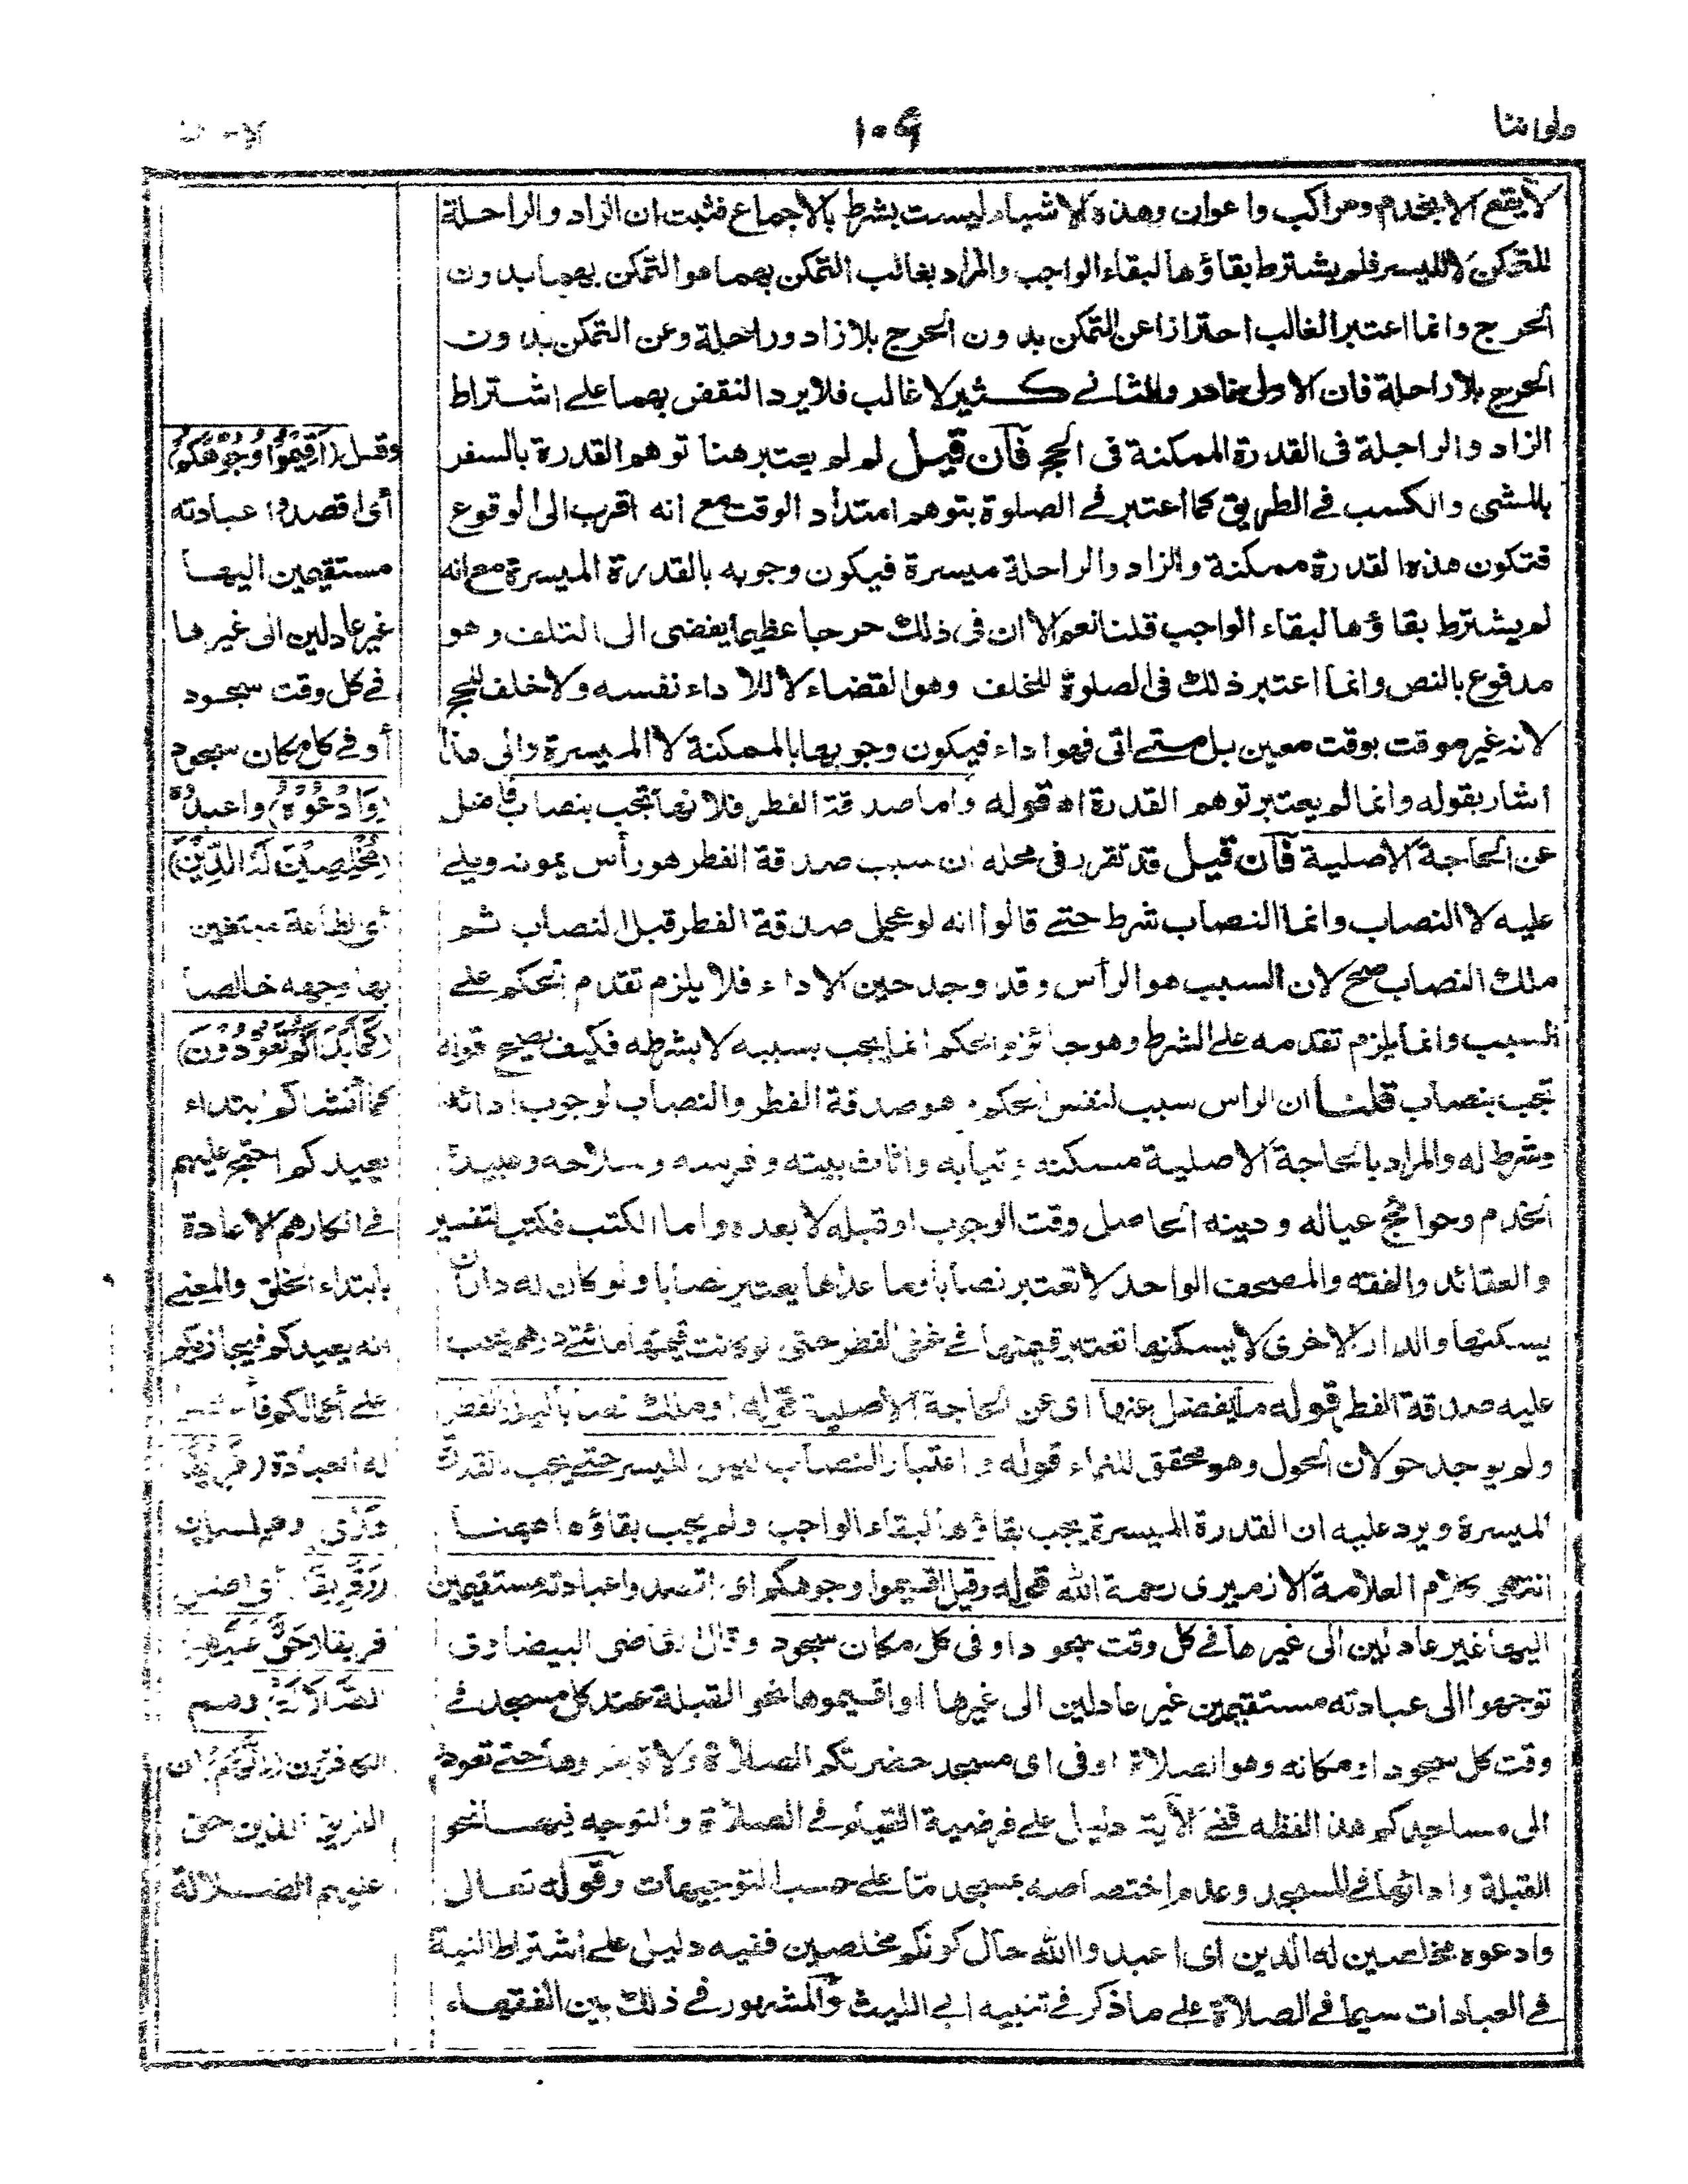 ولو اننا
١٠٩
لا يقع الا بخدم ومراكب واعوان وهذه الاشياء ليست بشرط بالاجماع فثبت ان الزاد والراحلة
للتمكن لا لليسر فلم يشترط بقاؤها لبقاء الواجب والمراد بغالب التمكن بهما هو التمكن بهما بدون
الحرج وانما اعتبر الغالب احترازا عن التمكن بدون الحرج بلا زاد وراحلة وعن التمكن بدون
الحرج بلا راحلة فان الاول نادر والثاني كثير لا غالب فلا يرد النقض بهما على اشتراط
الزاد والراحلة فى القدرة الممكنة فى الحج فان قيل لم لم يعتبر هنا توهم القدرة بالسفر
بالمشى والكسب في الطريق كما اعتبر في الصلوة بتوهم امتداد الوقت مع انه اقرب الى الوقوع
فتكون هذه القدرة ممكنة والزاد والراحلة ميسرة فيكون وجوبه بالقدرة الميسرة مع انه
لم يشترط بقاؤها لبقاء الواجب قلنا نعم الا ان فى ذلك حرجا عظيما يفضى الى التلف وهو
مدفوع بالنص وانما اعتبر ذلك فى الصلوة للخلف وهو القضاء لا للاداء نفسه ولا خلف للحج
لانه غير موقت بوقت معين بل متى اتى فهو اداء فيكون وجوبها بالممكنة لا الميسرة والى هذا
اشار بقوله وانما لم يعتبر توهم القدرة اه قوله واما صدقة الفطر فلانها تجب بنصاب فاضل
عن الحاجة الاصلية فان قيل قد تقرر فى محله ان سبب صدقة الفطر هو رأس يمونه ويلي
عليه لا النصاب وانما النصاب شرط حتى قالوا انه لو عجل صدقة الفطر قبل النصاب ثم
ملك النصاب صح لان السبب هو الرأس وقد وجد حين الاداء فلا يلزم تقدم الحكم على
السبب وانما يلزم تقدمه على الشرط وهو جائز والحكم انما يجب بسببه لا بشرطه فكيف يصح قوله
تجب بنصاب قلنا ان الراس سبب لنفس الحكم هو صدقة الفطر والنصاب لوجوب ادائه
وشرط له والمراد بالحاجة الاصلية مسكنه وثيابه واثاث بيته وفرسه وسلاحه وعبيده
الخدم وحوائج عياله ودينه الحاصل وقت الوجوب او قبله لا بعده واما الكتب فكتب لتفسير
والعقائد والفقه والمصحف الواحد لا تعتبر نصابا وما عداها يعتبر نصابا ولو كان له داران
يسكنها والدار الاخرى لا يسكنها تعتبر قيمتها في حق الفطر حتى لو كانت قيمتها مائتى درهم يجب
عليه صدقة الفطر قوله ما يفضل عنها اى عن الحاجة الاصلية قوله او ملك نصابا ليلة الفطر
ولم يوجد حولان الحول وهو محقق للنماء قوله واعتبار النصاب ليس لليسر حتى يجب القدرة
الميسرة ويرد عليه ان القدرة الميسرة يجب بقاؤها لبقاء الواجب ولم يجب بقاؤه اههنا
انتهى كلام العلامة الازميرى رحمة الله قوله وقيل اقيموا وجوهكم اى اقصدوا عبادته مستقيمين
اليها غير عادلين الى غيرها في كل وقت سجود او فى كل مكان سجود وقال القاضى البيضاوى
توجهوا الى عبادته مستقيمين غير عادلين الى غيرها او اقيموها نحو القبلة عند كل مسجد في
وقت كل سجود او مكانه وهو الصلاة او فى اى مسجد حضرتكم الصلاة ولا تؤخروها حتى تعودوا
الى مساجدكم هذا لفظه ففي الآية دليل على فرضية القيام في الصلاة والتوجه فيها نحو
القبلة وادائها في المسجد وعدم اختصاصه بمسجد ما على حسب التوجيهات وقوله تعالى
وادعوه مخلصين له الدين اى اعبدوا الله حال كونكم مخلصين ففيه دليل على اشتراط النية
في العبادات سيما في الصلاة على ما ذكر في تنبيه ابي الليث والمشهور في ذلك بين الفقهاء
وقيل (اَقِيْمُوْا وُجُوْهَكُمْ)
أى اقصدوا عبادته
مستقيمين اليها
غير عادلين الى غيرها
في كل وقت سجود
أو في كل مكان سجود
(وَادْعُوْهُ) واعبدوه
(مُخْلِصِيْنَ لَهُ الدِّيْنَ)
أى الطاعة مبتغين
بها وجهه خالصا
(كَمَا بَدَاَكُمْ تَعُوْدُوْنَ)
كما أنشاكم ابتداء
يعيدكم احتج عليهم
في انكارهم الاعادة
بابتداء الخلق والمعنى
انه يعيدكم فيجازيكم
على أعمالكم
له العبادة (فَرِيْقًا
هَدٰى) وهم المسلمون
(وَفَرِيْقًا) أى اضل
فريقا (حَقَّ عَلَيْهِمُ
الضَّلَالَةُ) وهم
الكافرون (اِنَّهُمُ) ان
الفريق الذين حق
عليهم الضلالة